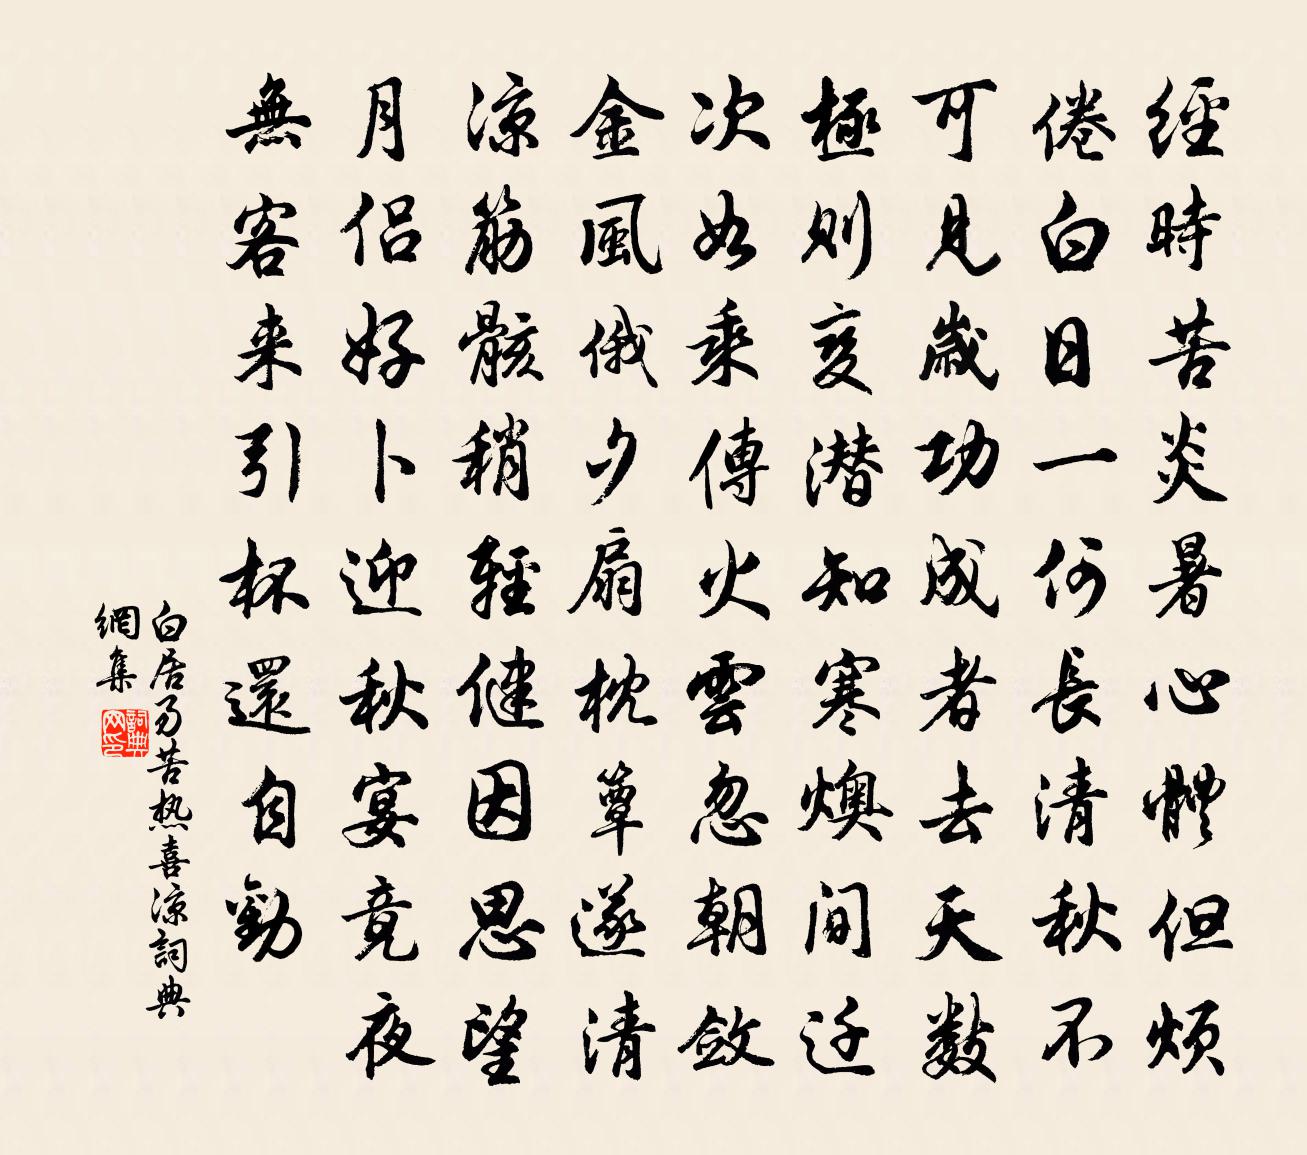 經時苦炎暑心體但煩
倦白日一何長清秋不
可見歲功成者去天數
極則变潜知寒燠間迁
次如乘傳火雲忽朝斂
金風俄夕扇枕簟遂清
涼筋骸稍輕健因思望
月侶好卜迎秋宴竟夜
無客来引杯還自勸
白居易苦热喜涼詞典
網集
詞典
网印